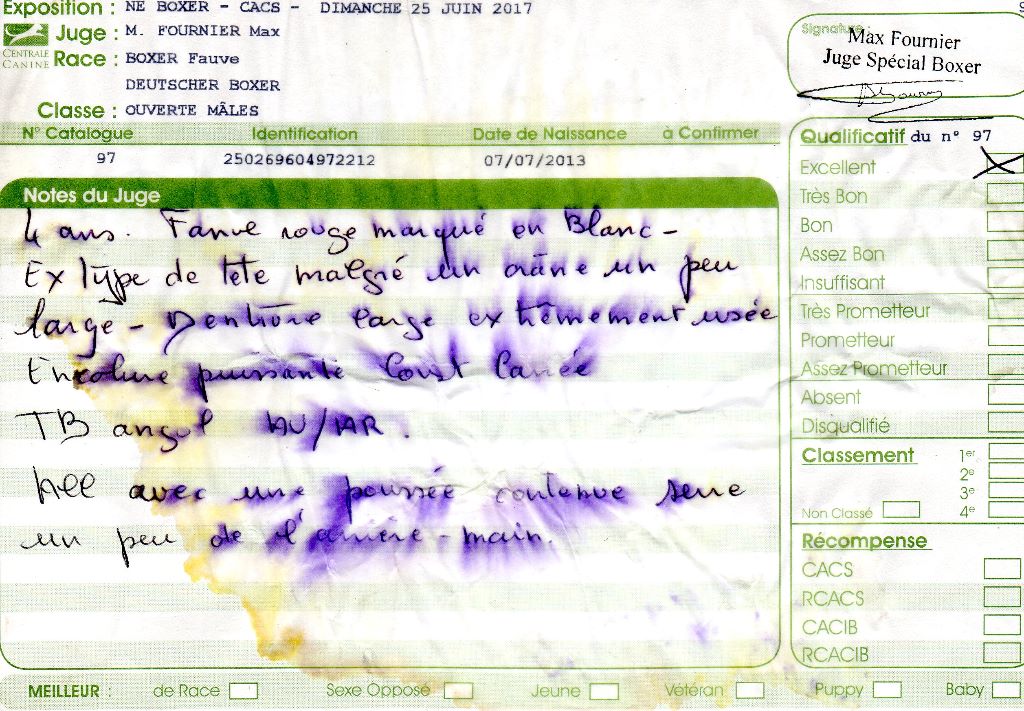 Exposition : NE BOXER - CACS - DIMANCHE 25 JUIN 2017
Juge : M. FOURNIER Max
CENTRALE CANINE
Race : BOXER Fauve
DEUTSCHER BOXER
Classe : OUVERTE MÂLES
Signature
Max Fournier
Juge Spécial Boxer
N° Catalogue Identification Date de Naissance à Confirmer
97 250269604972212 07/07/2013
Notes du Juge
4 ans. Fauve rouge marqué en Blanc -
Ex Type de tête malgré un crâne un peu
large - Dentition large extrêmement usée
Encolure puissante Const Carrée
TB angul AV/AR.
All avec une poussée contenue serre
un peu de l'arrière-main.
Qualificatif du n° 97
Excellent
Très Bon
Bon
Assez Bon
Insuffisant
Très Prometteur
Prometteur
Assez Prometteur
Absent
Disqualifié
Classement 1er
2e
3e
Non Classé 4e
Récompense
CACS
RCACS
CACIB
RCACIB
MEILLEUR : de Race Sexe Opposé Jeune Vétéran Puppy Baby